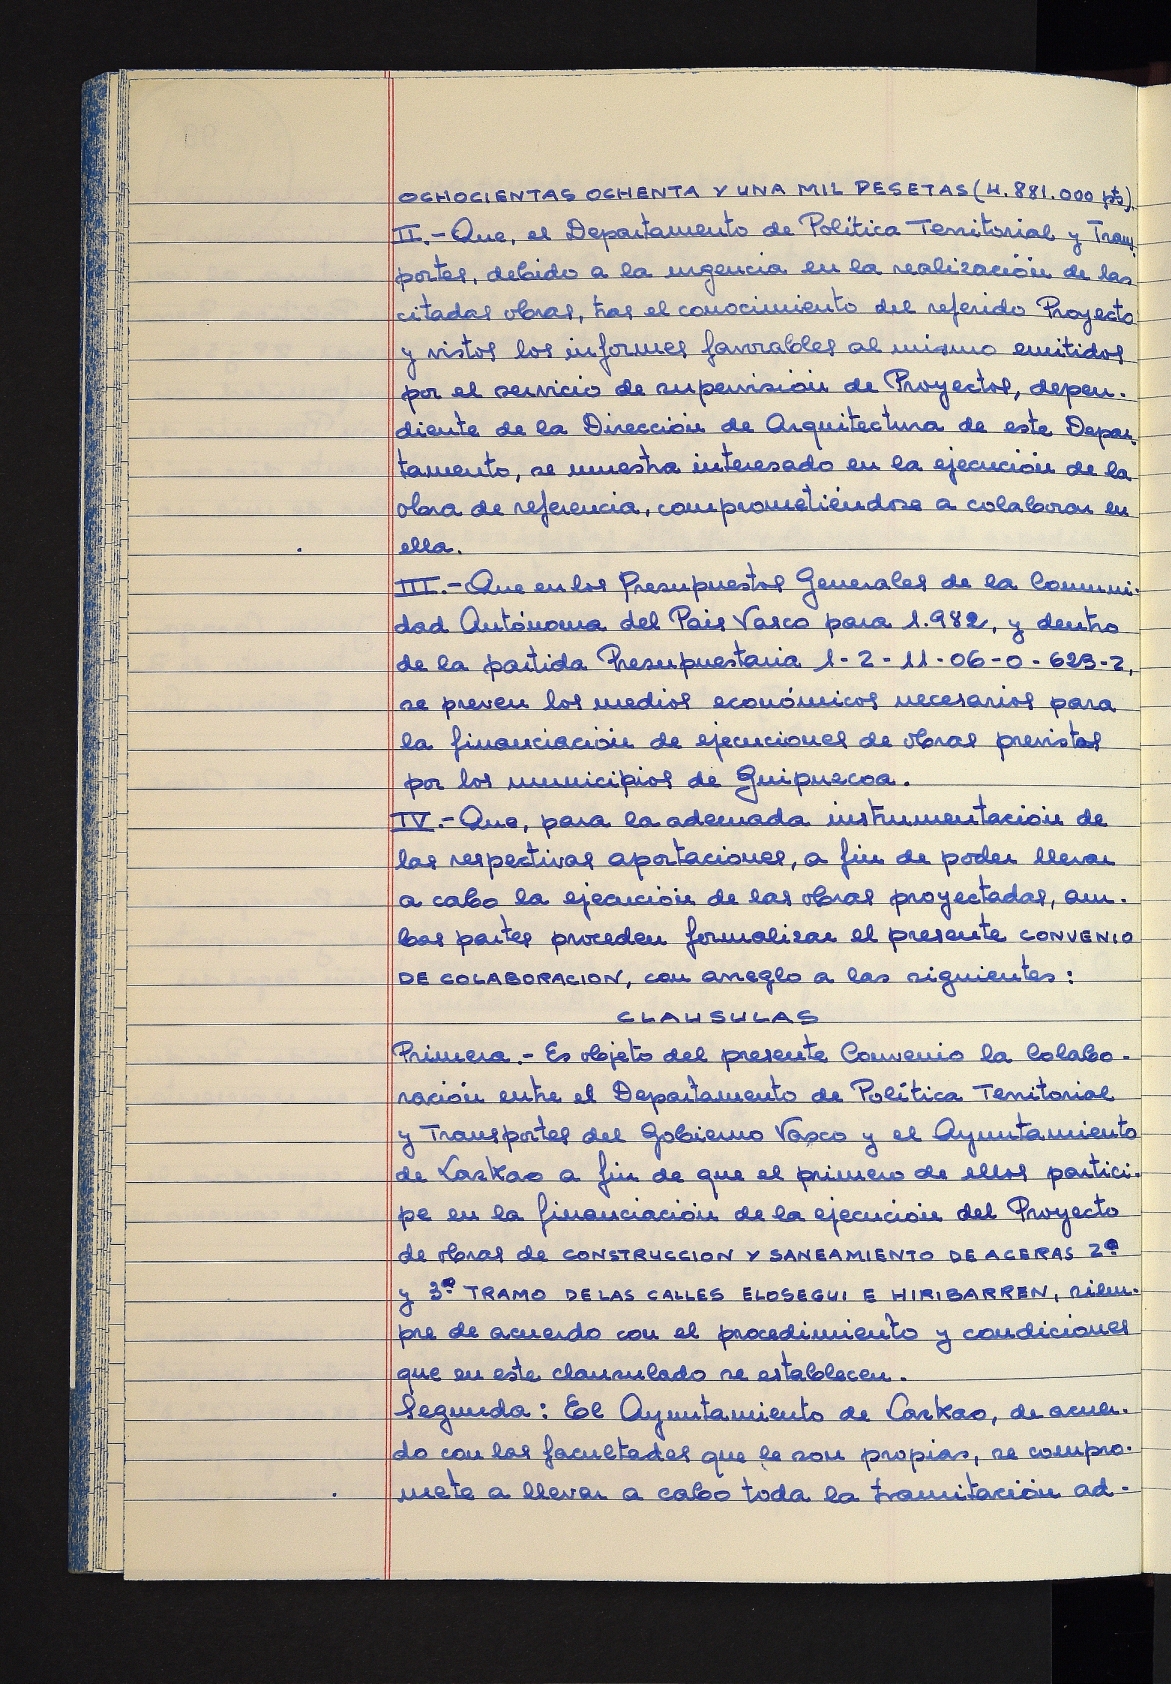 OCHOCIENTAS OCHENTA Y UNA MIL PESETAS (4.881.000 pts).
II.- Que, el Departamento de Política Territorial y Trans-
portes, debido a la urgencia en la realización de las
citadas obras, tras el conocimiento del referido Proyecto
y vistos los informes favorables al mismo emitidos
por el servicio de supervisión de Proyectos, depen-
diente de la Dirección de Arquitectura de este Depar-
tamento, se muestra interesado en la ejecución de la
obra de referencia, comprometiéndose a colaborar en
ella.
III.- Que en los Presupuestos Generales de la Comuni-
dad Autónoma del Pais Vasco para 1.982, y dentro
de la partida Presupuestaria 1-2-11-06-0-623-2,
se preven los medios económicos necesarios para
la financiación de ejecuciones de obras previstas
por los municipios de Guipuzcoa.
IV.- Que, para la adecuada instrumentación de
las respectivas aportaciones, a fin de poder llevar
a cabo la ejecución de las obras proyectadas, am-
bas partes proceden formalizar el presente CONVENIO
DE COLABORACION, con arreglo a las siguientes:
CLAUSULAS
Primera.- Es objeto del presente Convenio la Colabo-
ración entre el Departamento de Política Territorial
y Transportes del Gobierno Vasco y el Ayuntamiento
de Lazkao a fin de que el primero de ellos partici-
pe en la financiación de la ejecución del Proyecto
de obras de CONSTRUCCION Y SANEAMIENTO DE ACERAS 2º
y 3º TRAMO DE LAS CALLES ELOSEGUI E HIRIBARREN, siem-
pre de acuerdo con el procedimiento y condiciones
que en este clausulado se establecen.
Segunda: El Ayuntamiento de Lazkao, de acuer-
do con las facultades que le son propias, se compro-
mete a llevar a cabo toda la tramitación ad-